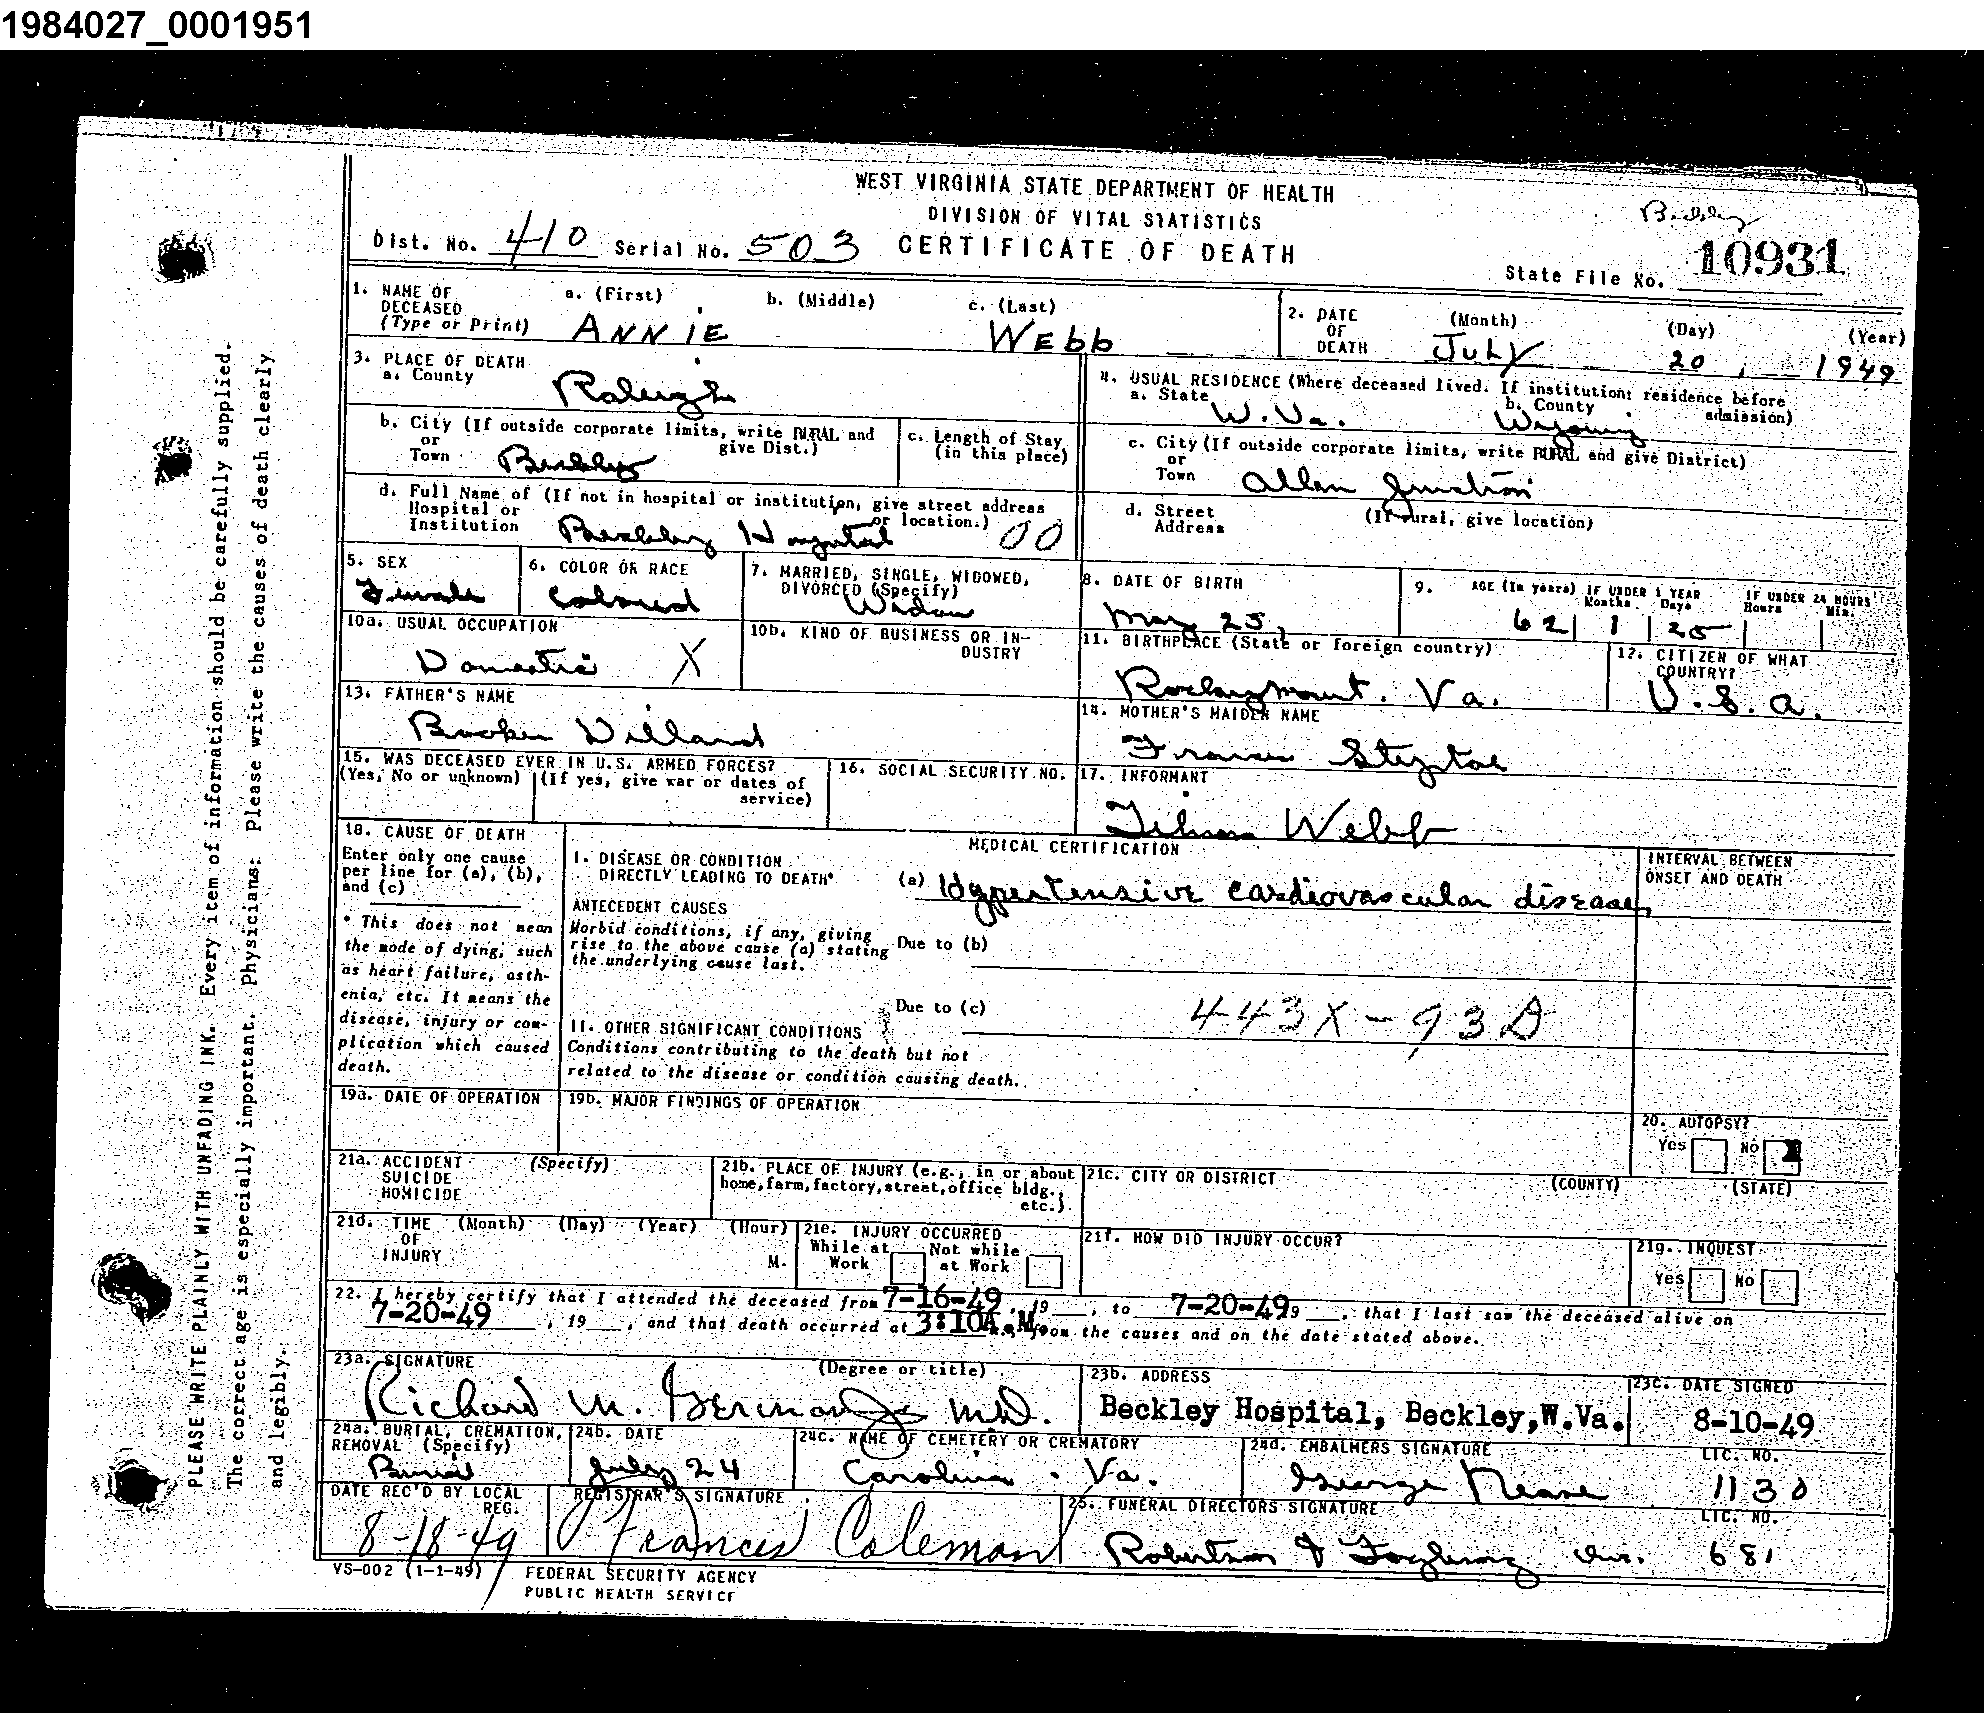 1984027_0001951
WEST VIRGINIA STATE DEPARTMENT OF HEALTH
DIVISION OF VITAL STATISTICS
Beckley
Dist. No. 410 Serial No. 503 CERTIFICATE OF DEATH
State File No. 10931
1. NAME OF DECEASED (Type or Print) a. (First) b. (Middle) c. (Last)
ANNIE Webb
2. DATE OF DEATH (Month) (Day) (Year)
July 20, 1949
3. PLACE OF DEATH
a. County Raleigh
4. USUAL RESIDENCE (Where deceased lived. If institution: residence before admission)
a. State W. Va. b. County Wyoming
b. City (If outside corporate limits, write RURAL and give Dist.) or Town Beckley
c. Length of Stay (in this place)
c. City (If outside corporate limits, write RURAL and give District) or Town Allan Junction
d. Full Name of (If not in hospital or institution, give street address or location.) Hospital or Institution Beckley Hospital 00
d. Street Address (If rural, give location)
5. SEX Female
6. COLOR OR RACE Colored
7. MARRIED, SINGLE, WIDOWED, DIVORCED (Specify) Widow
8. DATE OF BIRTH May 25,
9. AGE (In years) IF UNDER 1 YEAR Months Days IF UNDER 24 HOURS Hours Min.
62 1 25
10a. USUAL OCCUPATION Domestic X
10b. KIND OF BUSINESS OR INDUSTRY
11. BIRTHPLACE (State or foreign country) Rockymount. Va.
12. CITIZEN OF WHAT COUNTRY? U.S.A.
13. FATHER'S NAME Booker Dillard
14. MOTHER'S MAIDEN NAME Frances
15. WAS DECEASED EVER IN U.S. ARMED FORCES?
(Yes, No or unknown) (If yes, give war or dates of service)
16. SOCIAL SECURITY NO.
17. INFORMANT
Webb
MEDICAL CERTIFICATION
18. CAUSE OF DEATH
Enter only one cause per line for (a), (b), and (c)
* This does not mean the mode of dying, such as heart failure, asthenia, etc. It means the disease, injury or complication which caused death.
I. DISEASE OR CONDITION DIRECTLY LEADING TO DEATH* (a) Hypertensive cardiovascular disease,
INTERVAL BETWEEN ONSET AND DEATH
ANTECEDENT CAUSES
Morbid conditions, if any, giving rise to the above cause (a) stating the underlying cause last.
Due to (b)
Due to (c)
443X-93D
II. OTHER SIGNIFICANT CONDITIONS
Conditions contributing to the death but not related to the disease or condition causing death.
19a. DATE OF OPERATION
19b. MAJOR FINDINGS OF OPERATION
20. AUTOPSY?
Yes No
21a. ACCIDENT SUICIDE HOMICIDE (Specify)
21b. PLACE OF INJURY (e.g., in or about home, farm, factory, street, office bldg., etc.)
21c. CITY OR DISTRICT (COUNTY) (STATE)
21d. TIME OF INJURY (Month) (Day) (Year) (Hour) M.
21e. INJURY OCCURRED While at Work Not while at Work
21f. HOW DID INJURY OCCUR?
21g. INQUEST
Yes No
22. I hereby certify that I attended the deceased from 7-16-49, 19__, to 7-20-49 9__, that I last saw the deceased alive on
7-20-49, 19__, and that death occurred at 3:10A.M. from the causes and on the date stated above.
23a. SIGNATURE (Degree or title)
Richard M. German Jr M.D.
23b. ADDRESS
Beckley Hospital, Beckley, W.Va.
23c. DATE SIGNED
8-10-49
24a. BURIAL, CREMATION, REMOVAL (Specify) Burial
24b. DATE July 24
24c. NAME OF CEMETERY OR CREMATORY Carolina. Va.
24d. EMBALMERS SIGNATURE George
LIC. NO. 1130
DATE REC'D BY LOCAL REG. 8-18-49
REGISTRAR'S SIGNATURE Frances Coleman
25. FUNERAL DIRECTORS SIGNATURE Robertson &
LIC. NO. 681
VS-002 (1-1-49)
FEDERAL SECURITY AGENCY
PUBLIC HEALTH SERVICE
PLEASE WRITE PLAINLY WITH UNFADING INK. Every item of information should be carefully supplied.
The correct age is especially important. Physicians: please write the causes of death clearly
and legibly.